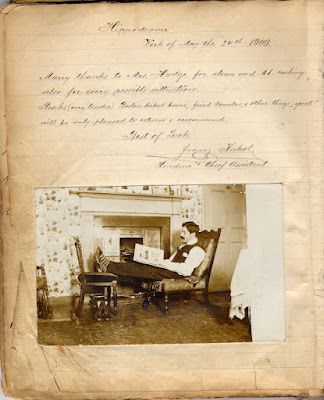 Hippodrome
Week of May the 24th 1909
Many thanks to Mrs. Hodge for clean and A1. cooking,
also for every possible attention.
Steaks (very tender) Boston baked beans, fried tomatoes & other things, great
will be only pleased to return & recommend.
Best of Luck
Franz Kukol,
Houdini's Chief Assistant